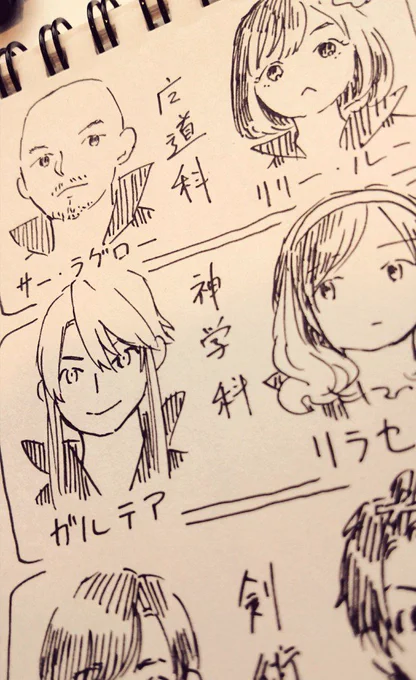 広道科
リリー・ルー
サー・ラグロー
神学科
リラセ
ガルテア
剣術